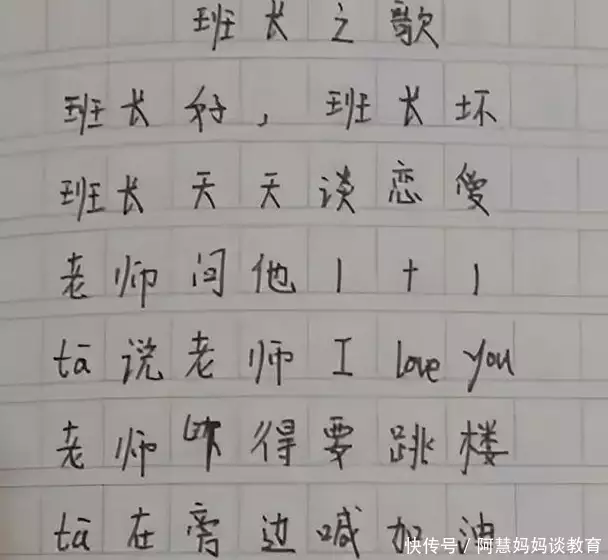 班长之歌
班长好，班长坏
班长天天谈恋爱
老师问他1+1
tā说老师I love you
老师吓得要跳楼
tā在旁边喊加油
快传号/阿慧妈妈谈教育